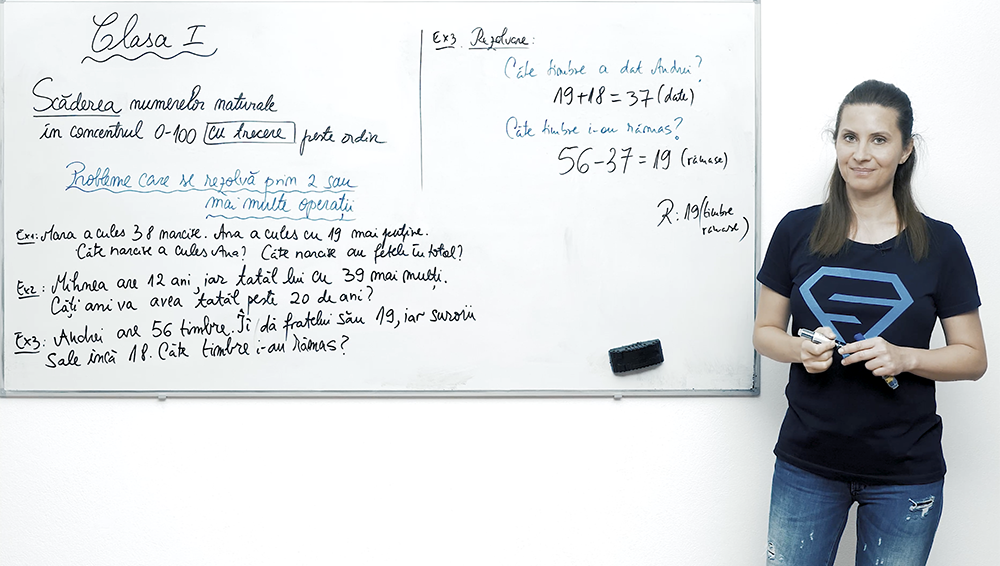 Clasa I
Scăderea numerelor naturale
în concentrul 0-100 cu trecere peste ordin
Probleme care se rezolvă prin 2 sau
mai multe operații
Ex1: Mara a cules 38 narcise. Ana a cules cu 19 mai puține.
Câte narcise a cules Ana? Câte narcise au fetele în total?
Ex2: Mihnea are 12 ani, iar tatăl lui cu 39 mai mulți.
Câți ani va avea tatăl peste 20 de ani?
Ex3: Andrei are 56 timbre. Îi dă fratelui său 19, iar surorii
sale încă 18. Câte timbre i-au rămas?
Ex3. Rezolvare:
Câte timbre a dat Andrei?
19+18=37 (date)
Câte timbre i-au rămas?
56-37=19 (rămase)
R: 19 (timbre
rămase)